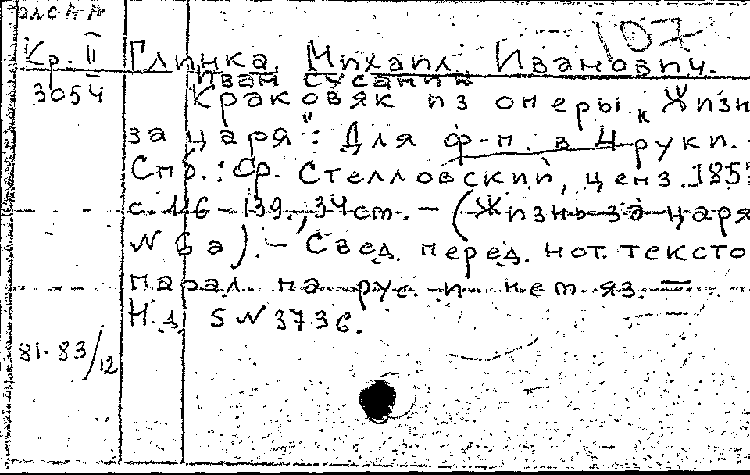 107
Кр. II
3054
Глинка, Михаил Иванович.
Иван Сусанин
Краковяк из оперы „Жизнь
за царя": Для ф-п. в 4 руки. -
Спб.: Ф. Стелловский, ценз. 185
с. 116-139., 34 см. - (Жизнь за царя
№ 6а). - Свед. перед. нот. тексто
парал. на рус. и нем. яз. =
Н.д. S № 373 б.
81-83/12